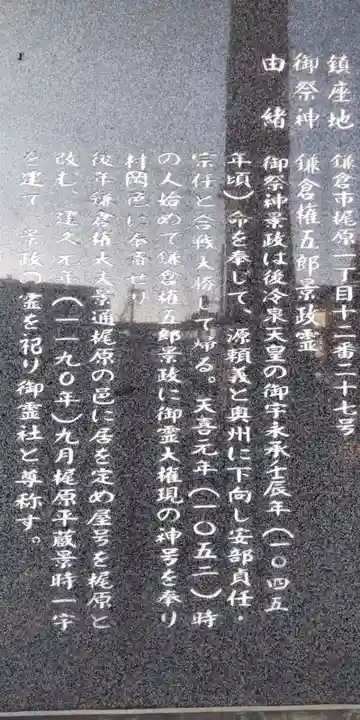 鎮座地　鎌倉市梶原一丁目十二番二十七号
御祭神　鎌倉権五郎景政霊
由緒　御祭神景政は後冷泉天皇の御宇永承壬辰年（一〇四五
年頃）命を奉じて、源頼義と奥州に下向し安部貞任・
宗任と合戦大勝して帰る。天喜元年（一〇五二）時
の人始めて鎌倉権五郎景政に御霊大権現の神号を奉り
村岡邑に奉斎せり
後年鎌倉権大夫景通梶原の邑に居を定め屋号を梶原と
改む、建久元年（一一九〇年）九月梶原平蔵景時一宇
を建て、景政の霊を祀り御霊社と尊称す。